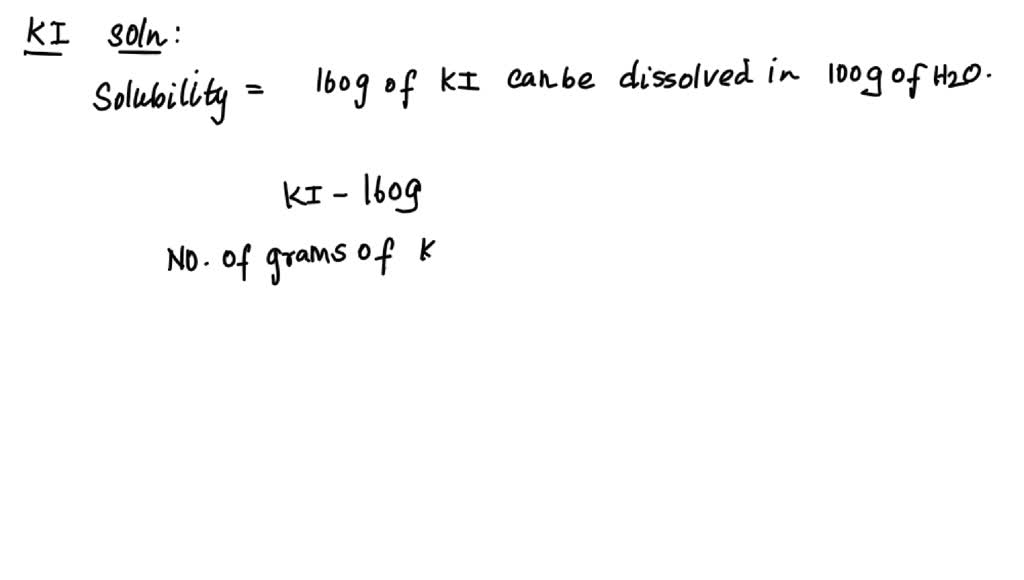 KI soln:
Solubility = 160g of KI can be dissolved in 100g of H2O.
KI - 160g
No. of grams of K